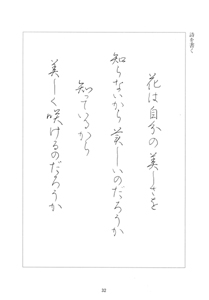 詩を書く
花は自分の美しさを
知らないから美しいのだろうか
知っているから
美しく咲けるのだろうか
32